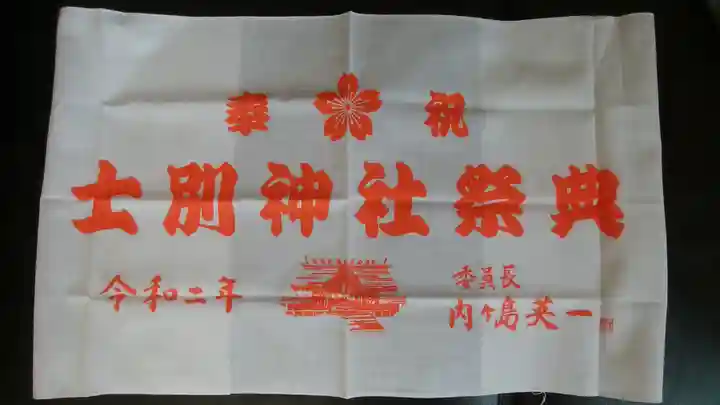 奉祝
士別神社祭典
令和二年
委員長
内ヶ島英一